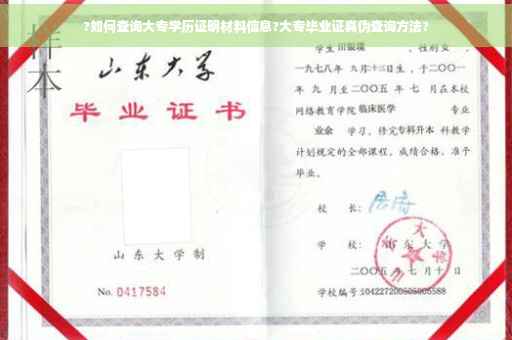 ?如何查询大专学历证明材料信息?大专毕业证真伪查询方法?
样本
山东大学
毕业证书
山东大学制
No. 0417584
学生
一九七八年 九月十三日生，于二〇〇一
年 九 月至二〇〇五 年 七 月在本校
网络教育学院 临床医学 专业
业余 学习，修完专科升本 科教学
计划规定的全部课程，成绩合格，准予
毕业。
校 长：
学 校：山东大学
二〇〇五 年 七 月 十 日
学校编号:104227200505005588